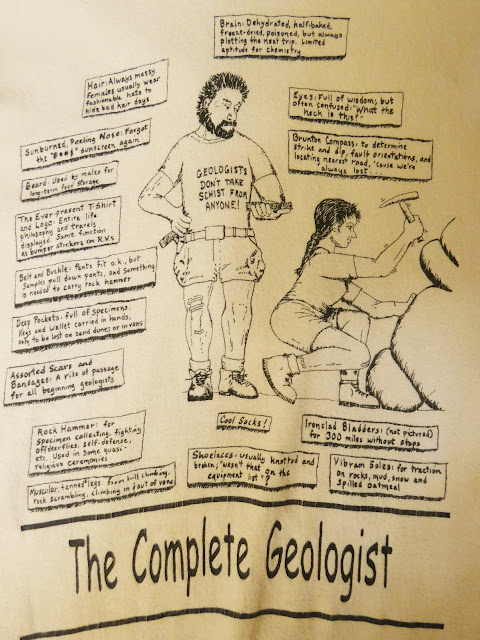 Brain: Dehydrated, half-baked,
freeze-dried, poisoned, but always
plotting the next trip. Limited
aptitude for chemistry
Hair: Always messy
Females usually wear
fashionable hats to
hide bad hair days
Eyes: Full of wisdom; but
often confused: "What the
heck is this?"
Sunburned, Peeling Nose: Forgot
the sunscreen again
Brunton Compass: to determine
strike and dip, fault orientations, and
locating nearest road, 'cause we're
always lost...
Beard: Used by males for
long-term food storage
GEOLOGISTS
DON'T TAKE
SCHIST FROM
ANYONE!
The Ever-present T-Shirt
and Logo: Entire life
philosophy and travels
displayed. Same function
as bumper stickers on R.V.s
Belt and Buckle: Pants fit o.k., but
Samples pull down pants, and something
is needed to carry rock hammer
Deep Pockets: full of specimens
Keys and wallet carried in hands,
only to be lost on sand dunes or in vans
Assorted Scars and
Bandages: A rite of passage
for all beginning geologists
Rock Hammer: for
specimen collecting, fighting
off deerflies, self-defense,
etc. Used in some quasi-
religious ceremonies
Cool Socks!
Ironclad Bladders: (not pictured)
for 300 miles without stops
Muscular, tanned legs: from hill climbing,
rock scrambling, climbing in + out of vans
Shoelaces: usually knotted and
broken; "wasn't that on the
equipment list"?
Vibram Soles: for traction
on rocks, mud, snow and
spilled oatmeal
The Complete Geologist